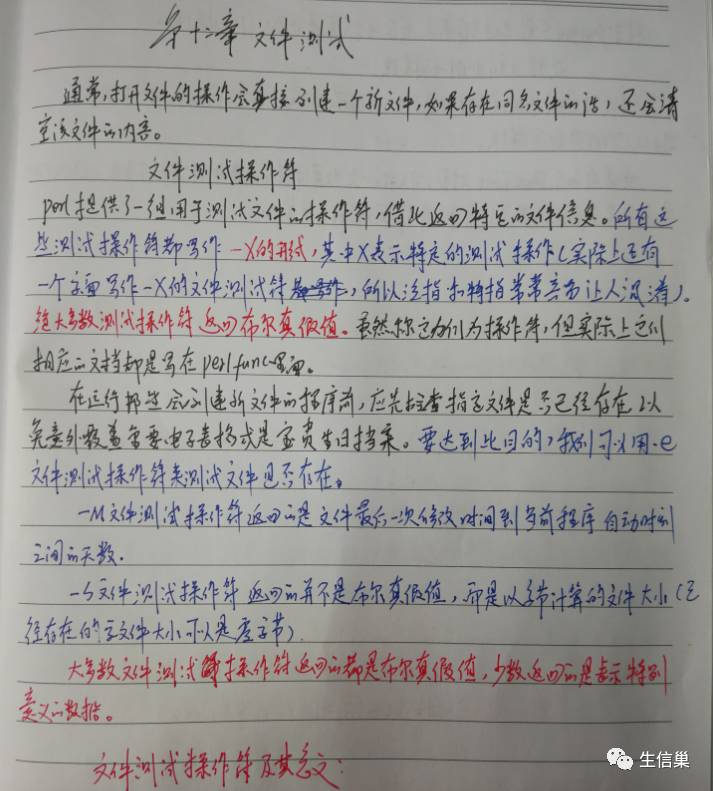 第十二章 文件测试
通常,打开文件的操作会直接创建一个新文件,如果存在同名文件的话,还会清
空该文件的内容。
文件测试操作符
perl提供了一组用于测试文件的操作符,借此返回特定的文件信息。所有这
些测试操作符都写作-X的形式,其中X表示特定的测试操作(实际上还有
一个字面写作-X的文件测试符,所以泛指和特指常常容易让人混淆)。
绝大多数测试操作符返回布尔真假值。虽然称它们为操作符,但实际上它们
相应的文档却是写在perlfunc里面。
在运行那些会创建新文件的程序前,应先检查指定文件是否已经存在以
免意外覆盖重要电子表格或是宝贵生日档案。要达到此目的,我们可以用-e
文件测试操作符来测试文件是否存在。
-M文件测试操作符返回的是文件最后一次修改时间到当前程序启动时刻
之间的天数.
-s文件测试操作符返回的并不是布尔真假值,而是以字节计算的文件大小(已
经存在的文件大小可以是零字节).
大多数文件测试操作符返回的都是布尔真假值,少数返回的是表示特别
意义的数据。
文件测试操作符及其含义:
生信巢